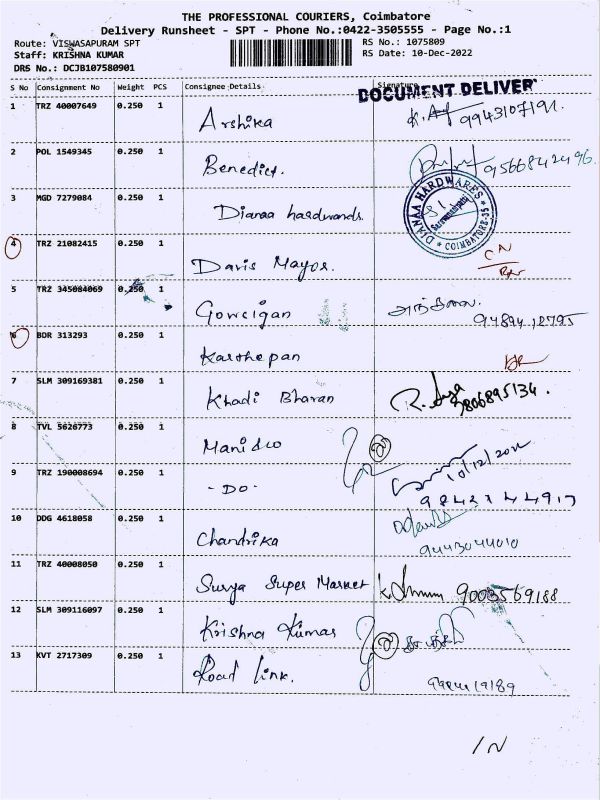 THE PROFESSIONAL COURIERS, Coimbatore
Delivery Runsheet - SPT - Phone No.:0422-3505555 - Page No.:1
Route: VISWASAPURAM SPT
Staff: KRISHNA KUMAR
DRS No.: DCJB107580901
RS No.: 1075809
RS Date: 10-Dec-2022
S No Consignment No Weight PCS Consignee Details Signature
DOCUMENT DELIVER
1 TRZ 40007649 0.250 1 Arshika 9943107191.
2 POL 1549345 0.250 1 Benedict. 9566842496.
3 MGD 7279084 0.250 1 Dianaa hardwands.
DIANAA HARDWARES
COIMBATORE-35
4 TRZ 21082415 0.250 1 Davis Mayor. CN
5 TRZ 345084069 0.250 1 Gowsigan
6 BDR 313293 0.250 1 Karthepan
7 SLM 309169381 0.250 1 Khadi Bhavan 9806895134.
8 TVL 5626773 0.250 1 Manidco
9 TRZ 190008694 0.250 1 -DO- 10/12/2022
10 DDG 4618058 0.250 1 Chandrika 9443044010
11 TRZ 40008050 0.250 1 Surya Super Market 9003569188
12 SLM 309116097 0.250 1 Krishna Kumar
13 KVT 2717309 0.250 1 Road link.